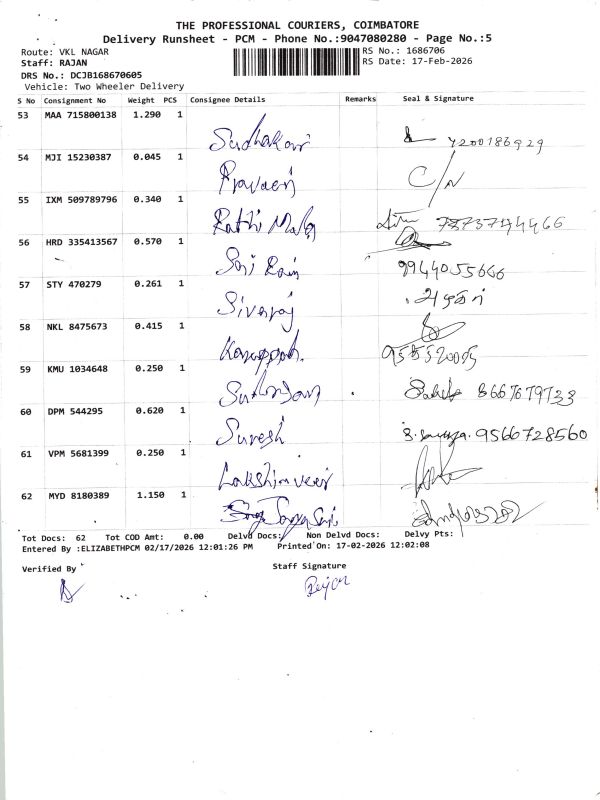 THE PROFESSIONAL COURIERS, COIMBATORE
Delivery Runsheet - PCM - Phone No.:9047080280 - Page No.:5
Route: VKL NAGAR
RS No.: 1686706
Staff: RAJAN
RS Date: 17-Feb-2026
DRS No.: DCJB168670605
Vehicle: Two Wheeler Delivery
S No Consignment No Weight PCS Consignee Details Remarks Seal & Signature
53 MAA 715800138 1.290 1
Sudhakar 7200186929
54 MJI 15230387 0.045 1
Praveen C/N
55 IXM 509789796 0.340 1
Rathi Mala
56 HRD 335413567 0.570 1
Sai Ram 9944055666
57 STY 470279 0.261 1
Sivaraj
58 NKL 8475673 0.415 1
59 KMU 1034648 0.250 1
8667679733
60 DPM 544295 0.620 1
Suresh 9566728560
61 VPM 5681399 0.250 1
62 MYD 8180389 1.150 1
Tot Docs: 62 Tot COD Amt: 0.00 Delvd Docs: Non Delvd Docs: Delvy Pts:
Entered By :ELIZABETHPCM 02/17/2026 12:01:26 PM Printed On: 17-02-2026 12:02:08
Verified By Staff Signature